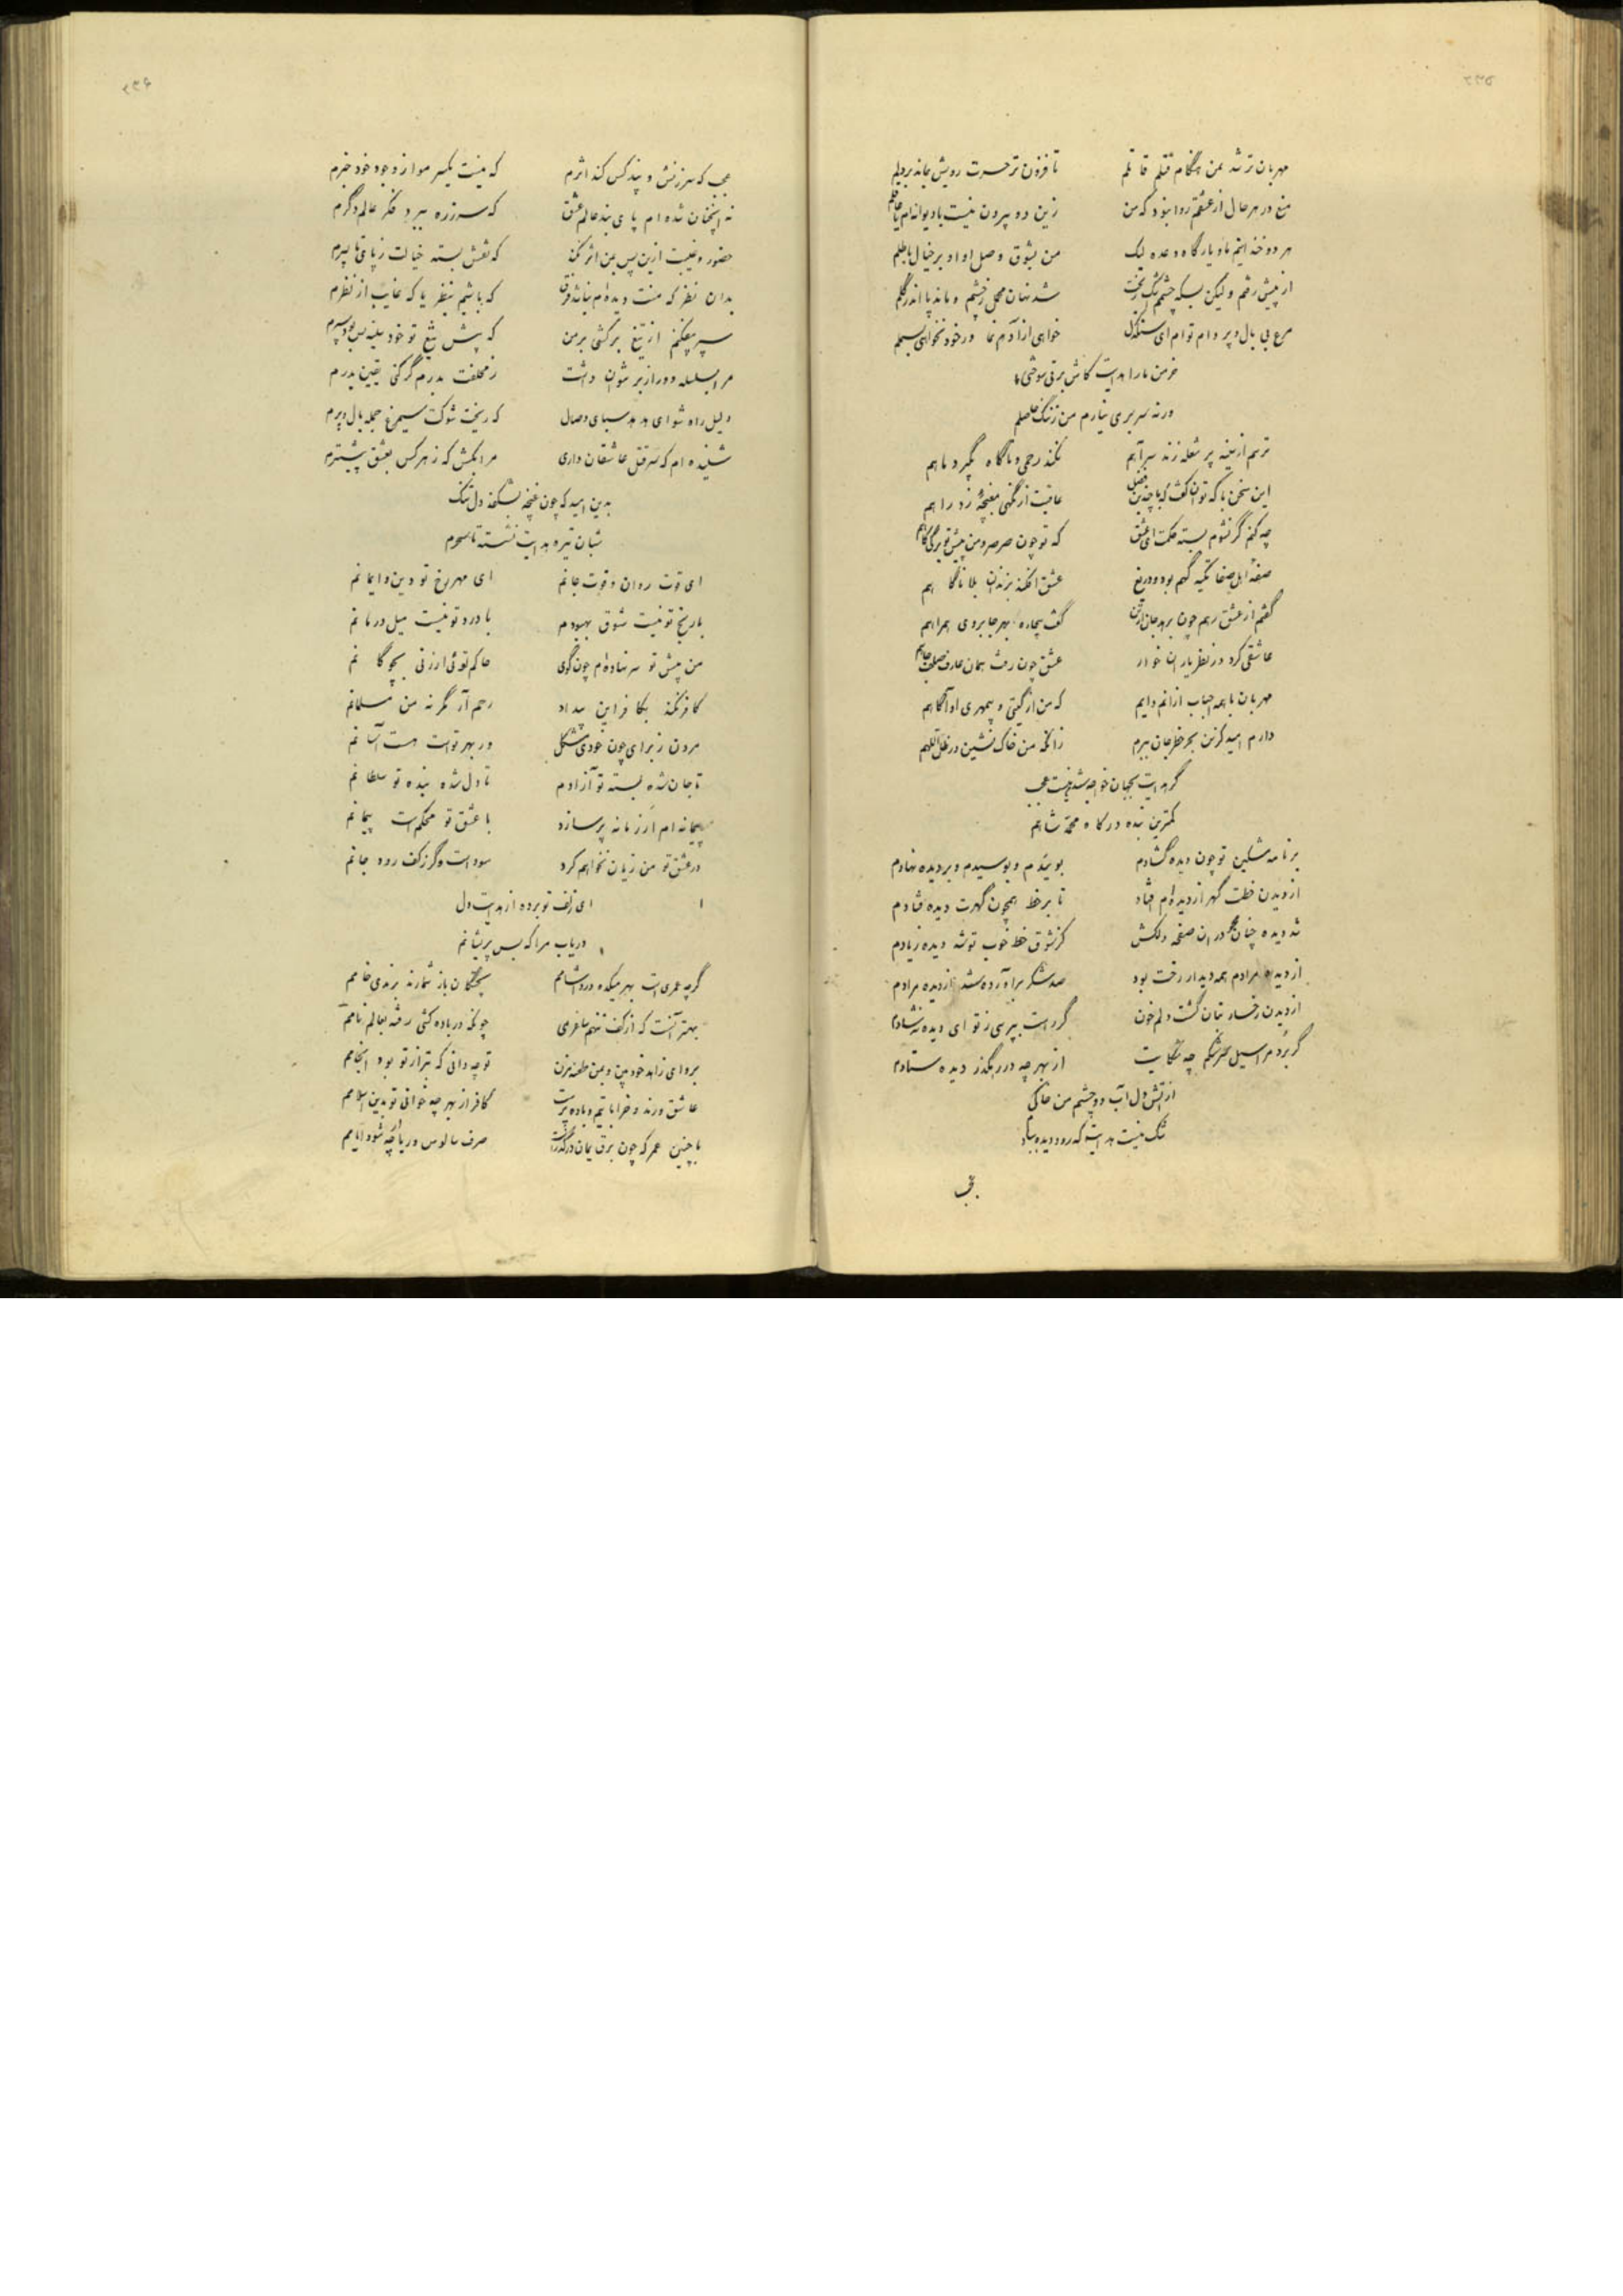 مهربان تر شد بمن هنگام قتلم قاتلم تا فزون تر حسرت رویش بماند بر دلم
منع در هر حال از عشقم روا نبود که من زین دو بیرون نیست یا دیوانه‌ام یا عاقلم
هر دو خندانیم ما و یار گاه وعده لیک من بشوق وصل او او بر خیال باطلم
از پیش رفتم ولیکن بسکه چشمم اشک ریخت شد نهان محمل ز چشمم و ماند پا اندر گلم
مرغ بی بال و پر و دام توام ای سنگدل خواهی ار آزادم نما ور خود نخواهی بسملم
خرمن ما را هدایت کاش برقی سوختی
ورنه سر بر می نیارم من ز ننگ حاصلم
ترسم از سینه پر شعله زند سر آهم نکند رحمی و ناگاه بگیرد ماهم
این سخن با که توان گفت که با چندین فضل عاقبت از نگهی مغبچهٔ زد راهم
چه کنم گر نشوم بسته حکمت ای عشق که تو چون صرصر و من پیش تو برگ کاهم
صفه اهل صفا تکیه گهم بود و دریغ عشق افکند بزندان بلا ناگاهم
گفتم از عشق رهم چون برهد جان از تن گفت بیچاره بهر جا بروی همراهم
عاشقی کرد در نظر یاران خوار عشق چون رفت همان عارف صاحب جاهم
مهربان با همه احباب ازانم دایم که من از گیتی و بیمهری او آگاهم
دارم امید کزین بحر خطر جان ببرم زانکه من خاک نشین در ظل اللهم
گر هدایت بجهان خواجه شد نیست عجب
کمترین بنده درگاه محمد شاهم
بر نامه مشکین تو چون دیده گشادم بوئیدم و بوسیدم و بر دیده نهادم
از دیدن خطت گهر از دیده‌ام افتاد تا بر خط همچون گهرت دیده فتادم
شد دیده چنان محو در ان صفحه دلکش کز شوق خط خوب تو شد دیده ز یادم
از دیده مرادم همه دیدار رخت بود صد شکر برآورده شد از دیده مرادم
از دیدن رخسار بتان گشت دلم خون گر راست بپرسی ز تو ای دیده نه شادم
گر برد مرا سیل سرشکم چه شکایت از بهر چه در رهگذر دیده ستادم
از آتش دل آب دو چشم من خاکی
شک نیست هدایت که رود دیده بباد
عجب
عجب که سرزنش و پند کس کند اثرم که نیست یکسر مو از وجود خود خبرم
نه آنچنان شده ام پای بند عالم عشق که سر زره ببرد فکر عالم دگرم
حضور و غیبت ازین پس بمن اثر نکند که نقش بسته خیالت ز پای تا بسرم
بدان نظر که منت دیده‌ام نباشد فرق که باشیم بنظر یا که غایب از نظرم
سپر نیفکنم از تیغ بر کشی بر من که پیش تیغ تو خود سینه بس بود سپرم
مرا بسلسله دور از بر شوان داشت ز مخلفت بدرم گر کنی یقین بدرم
دلیل راه شو ای هدهد سبای وصال که ریخت شوکت سیمرغ جمله بال و پرم
شنیده ام که سر قتل عاشقان داری مرا بکش که ز هر کس بعشق پیشترم
بدین امید که چون غنچه بشکفد دل تنگ
شبان تیره هدایت نشسته تا سحرم
ای قوت روان و قوت جانم ای مهر رخ تو دین و ایمانم
با رنج تو نیست شوق بهبودم با درد تو نیست میل درمانم
من پیش تو سر نهاده‌ام چون گوی حاکم توئی ار زنی بچوگانم
کافر نکند بکافر این بیداد رحم آر مگر نه من مسلمانم
مردن ز برای چون خودی مشکل ور بهر تو است هست آسانم
تا جان شده بسته تو آزادم تا دل شده بنده تو سلطانم
پیمانه ام ار زمانه پر سازد با عشق تو محکم است پیمانم
در عشق تو من زیان نخواهم کرد سود است وگر ز کف رود جانم
ای زلف تو برده از هدایت دل
دریاب مرا که بس پریشانم
گرچه عمری است بهر میکده درد آشامم پختگان باز شمارند برندی خامم
بهتر آنست که از کف ننهم ساغر می چونکه در باده کشی رفته بعالم نامم
برو ای زاهد خود بین و بمن طعنه مزن تو چه دانی که بتر از تو بود انجامم
عاشق و رند و خراباتیم و باده پرست کافر از بهر چه خوانی تو بدین اسلامم
با چنین عمر که چون برق یمان درگذر است صرف سالوس و ریا از چه شود ایامم